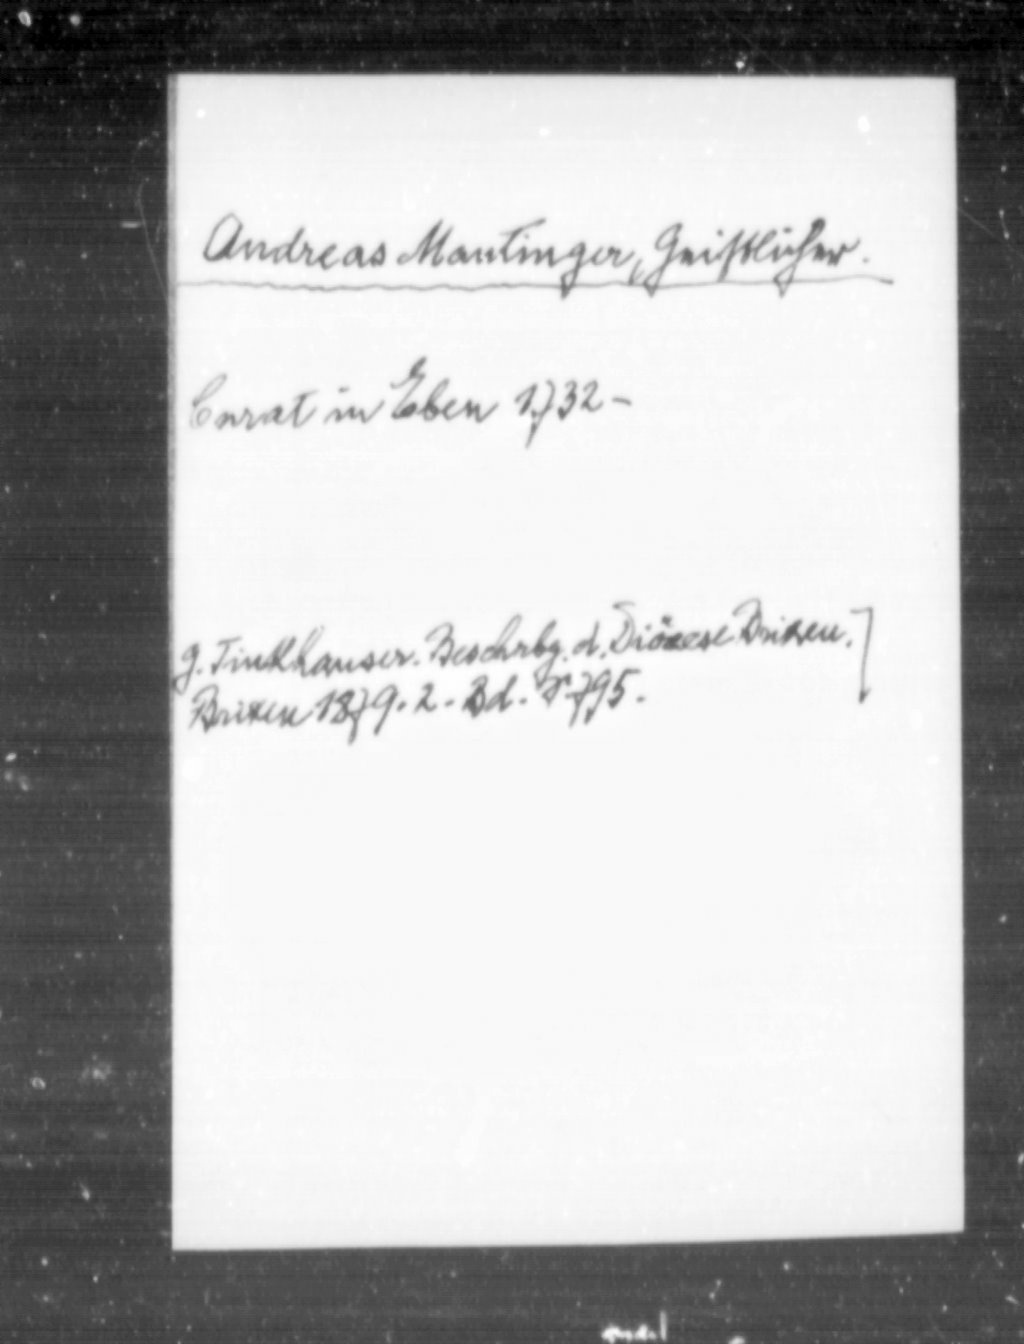 Andreas Mantinger, Geistlicher.
Curat in Eben 1732 -
G. Tinkhauser. Beschrbg. d. Diöcese Brixen.]
Brixen 1879. 2. Bd. S. 795.